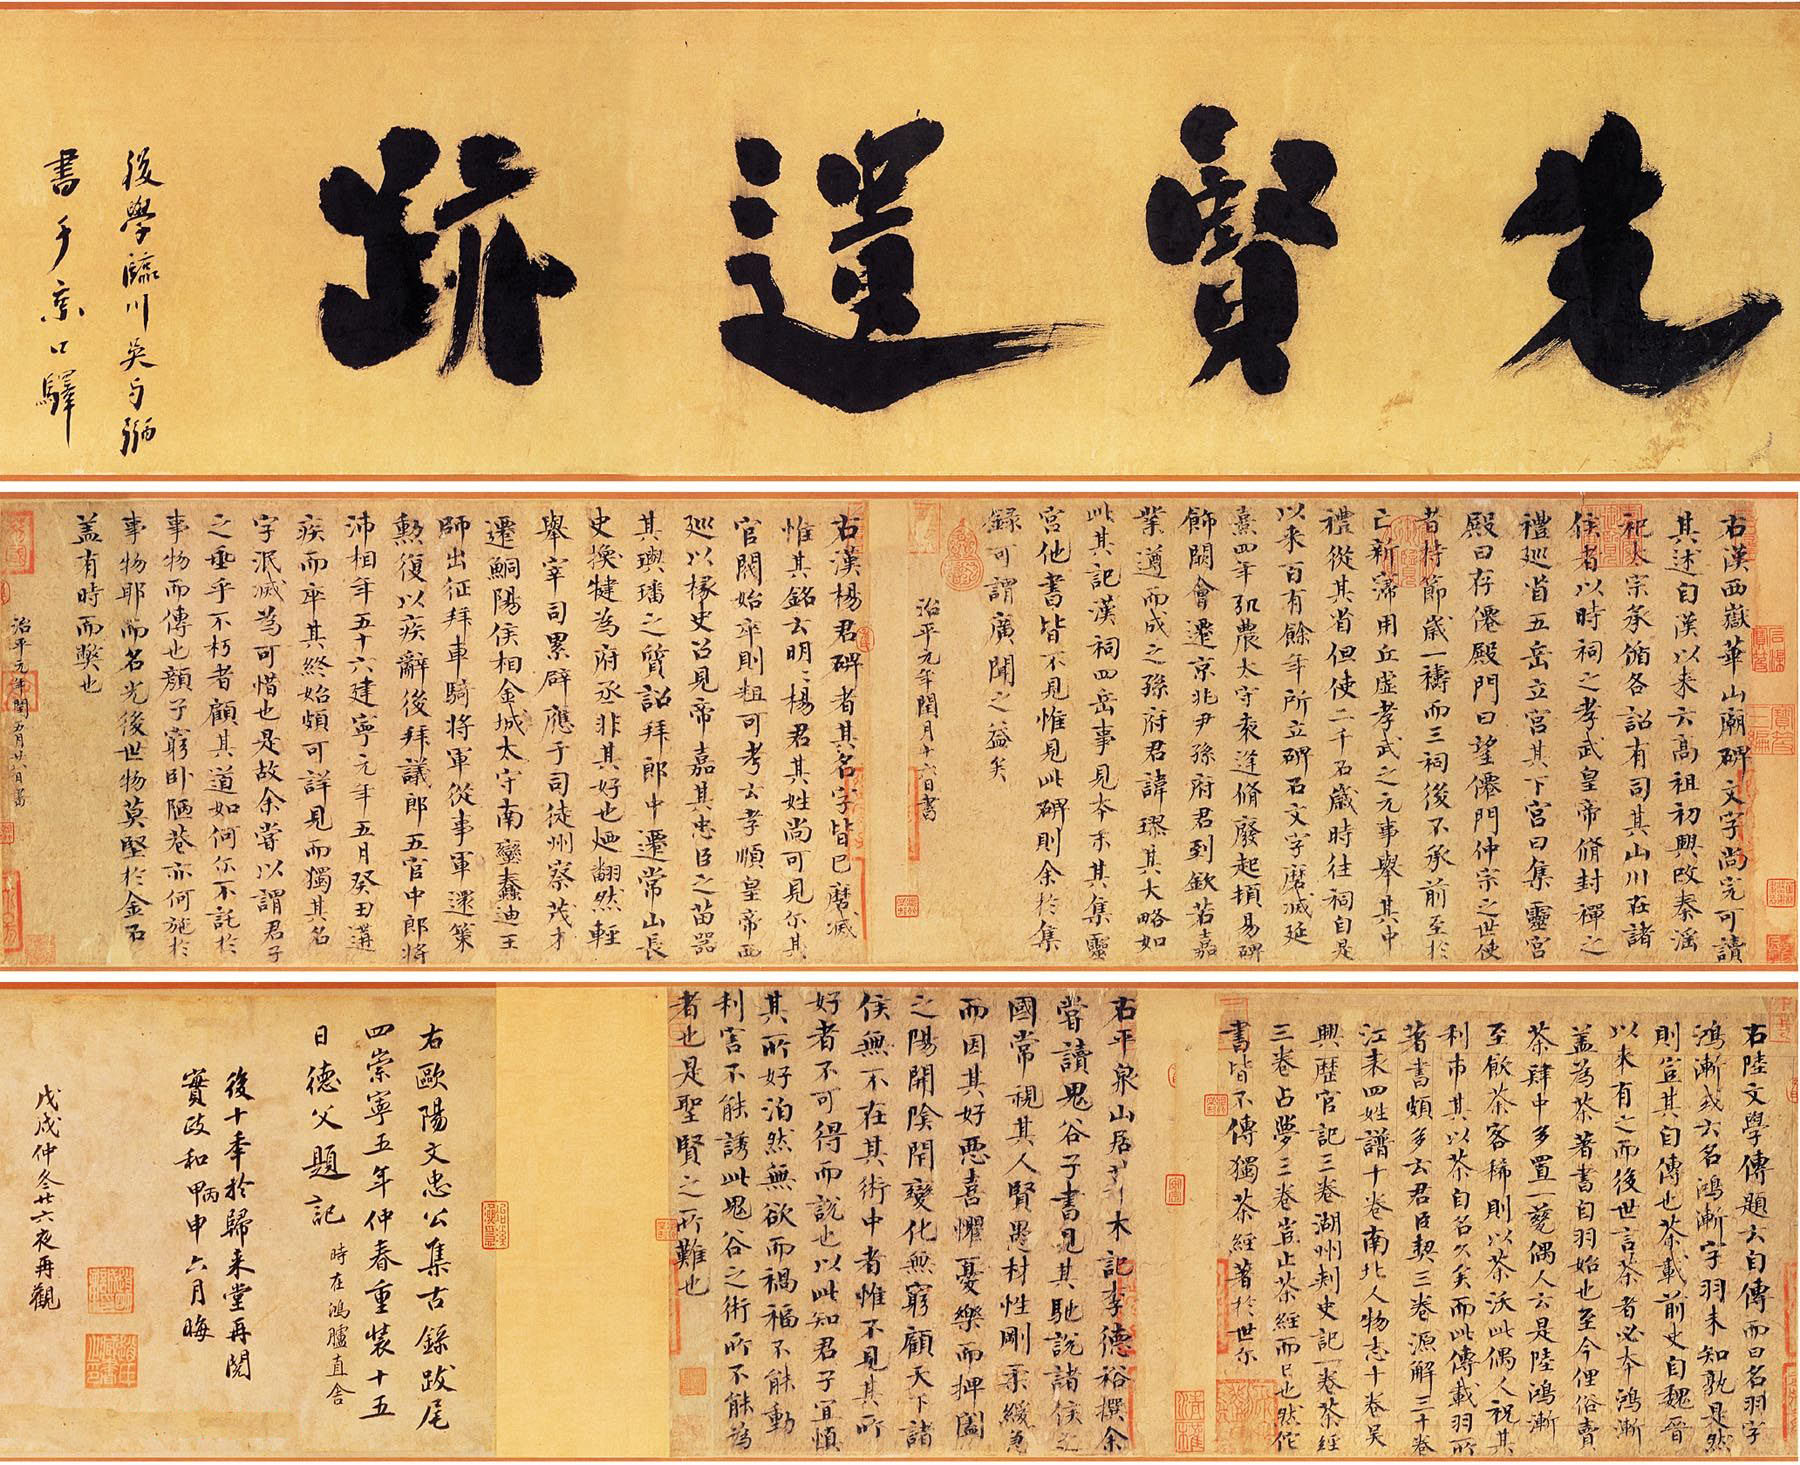 先賢遺跡
後學臨川吳與弼
書于京口驛
右漢西嶽華山廟碑文字尚完可讀
其述自漢以來云高祖初興改秦淫
祀太宗承循各詔有司其山川在諸
侯者以時祠之孝武皇帝脩封禪之
禮巡省五岳立宮其下宮曰集靈宮
殿曰存僊殿門曰望僊門仲宗之世使
者持節歲一禱而三祠後不承前至於
亡新寖用丘虛孝武之元事舉其中
禮從其省但使二千石歲時往祠自是
以來百有餘年所立碑石文字磨滅延
熹四年弘農太守袁逢脩廢起頓易碑
飾闕會遷京兆尹孫府君到欽若嘉
業遵而成之孫府君諱璆其大略如
此其記漢祠四岳事見本末其集靈
宮他書皆不見惟見此碑則余於集
錄可謂廣聞之益矣
治平元年閏月十六日書
右漢楊君碑者其名字皆已磨滅
惟其銘云明明楊君其姓尚可見尔其
官閥始卒則粗可考云孝順皇帝西
巡以掾史召見帝嘉其忠臣之苗器
其璵璠之質詔拜郎中遷常山長
史換犍為府丞非其好也迺翻然輕
舉宰司累辟應于司徒州察茂才
遷鮦陽侯相金城太守南蠻蠢迪王
師出征拜車騎將軍從事軍還策
勲復以疾辭後拜議郎五官中郎將
沛相年五十六建寧元年五月癸丑遘
疾而卒其終始頗可詳見而獨其名
字泯滅為可惜也是故余嘗以謂君子
之垂乎不朽者顧其道如何尔不託於
事物而傳也顏子窮卧陋巷亦何施於
事物耶而名光後世物莫堅於金石
盖有時而弊也
治平元年閏五月廿八日書
右陸文學傳題云自傳而曰名羽字
鴻漸或云名鴻漸字羽未知孰是然
則豈其自傳也茶載前史自魏晉
以來有之而後世言茶者必本鴻漸
盖為茶著書自羽始也至今俚俗賣
茶肆中多置一甆偶人云是陸鴻漸
至飲茶客稀則以茶沃此偶人祝其
利市其以茶自名久矣而此傳載羽所
著書頗多云君臣契三卷源解三十卷
江表四姓譜十卷南北人物志十卷吳
興歷官記三卷湖州刺史記一卷茶經
三卷占夢三卷豈止茶經而已也然佗
書皆不傳獨茶經著於世尔
右平泉山居草木記李德裕撰余
嘗讀鬼谷子書見其馳說諸侯之
國常視其人賢愚材性剛柔緩急
而因其好惡喜懼憂樂而捭闔
之陽開陰閉變化無窮顧天下諸
侯無不在其術中者惟不見其所
好者不可得而說也以此知君子宜慎
其所好泊然無欲而禍福不能動
利害不能誘此鬼谷之術所不能為
者也是聖賢之所難也
右歐陽文忠公集古錄跋尾
四崇寧五年仲春重裝十五
日德父題記時在鴻臚直舍
後十年於歸来堂再閱
實政和甲丙申六月晦
戊戌仲冬廿六夜再觀